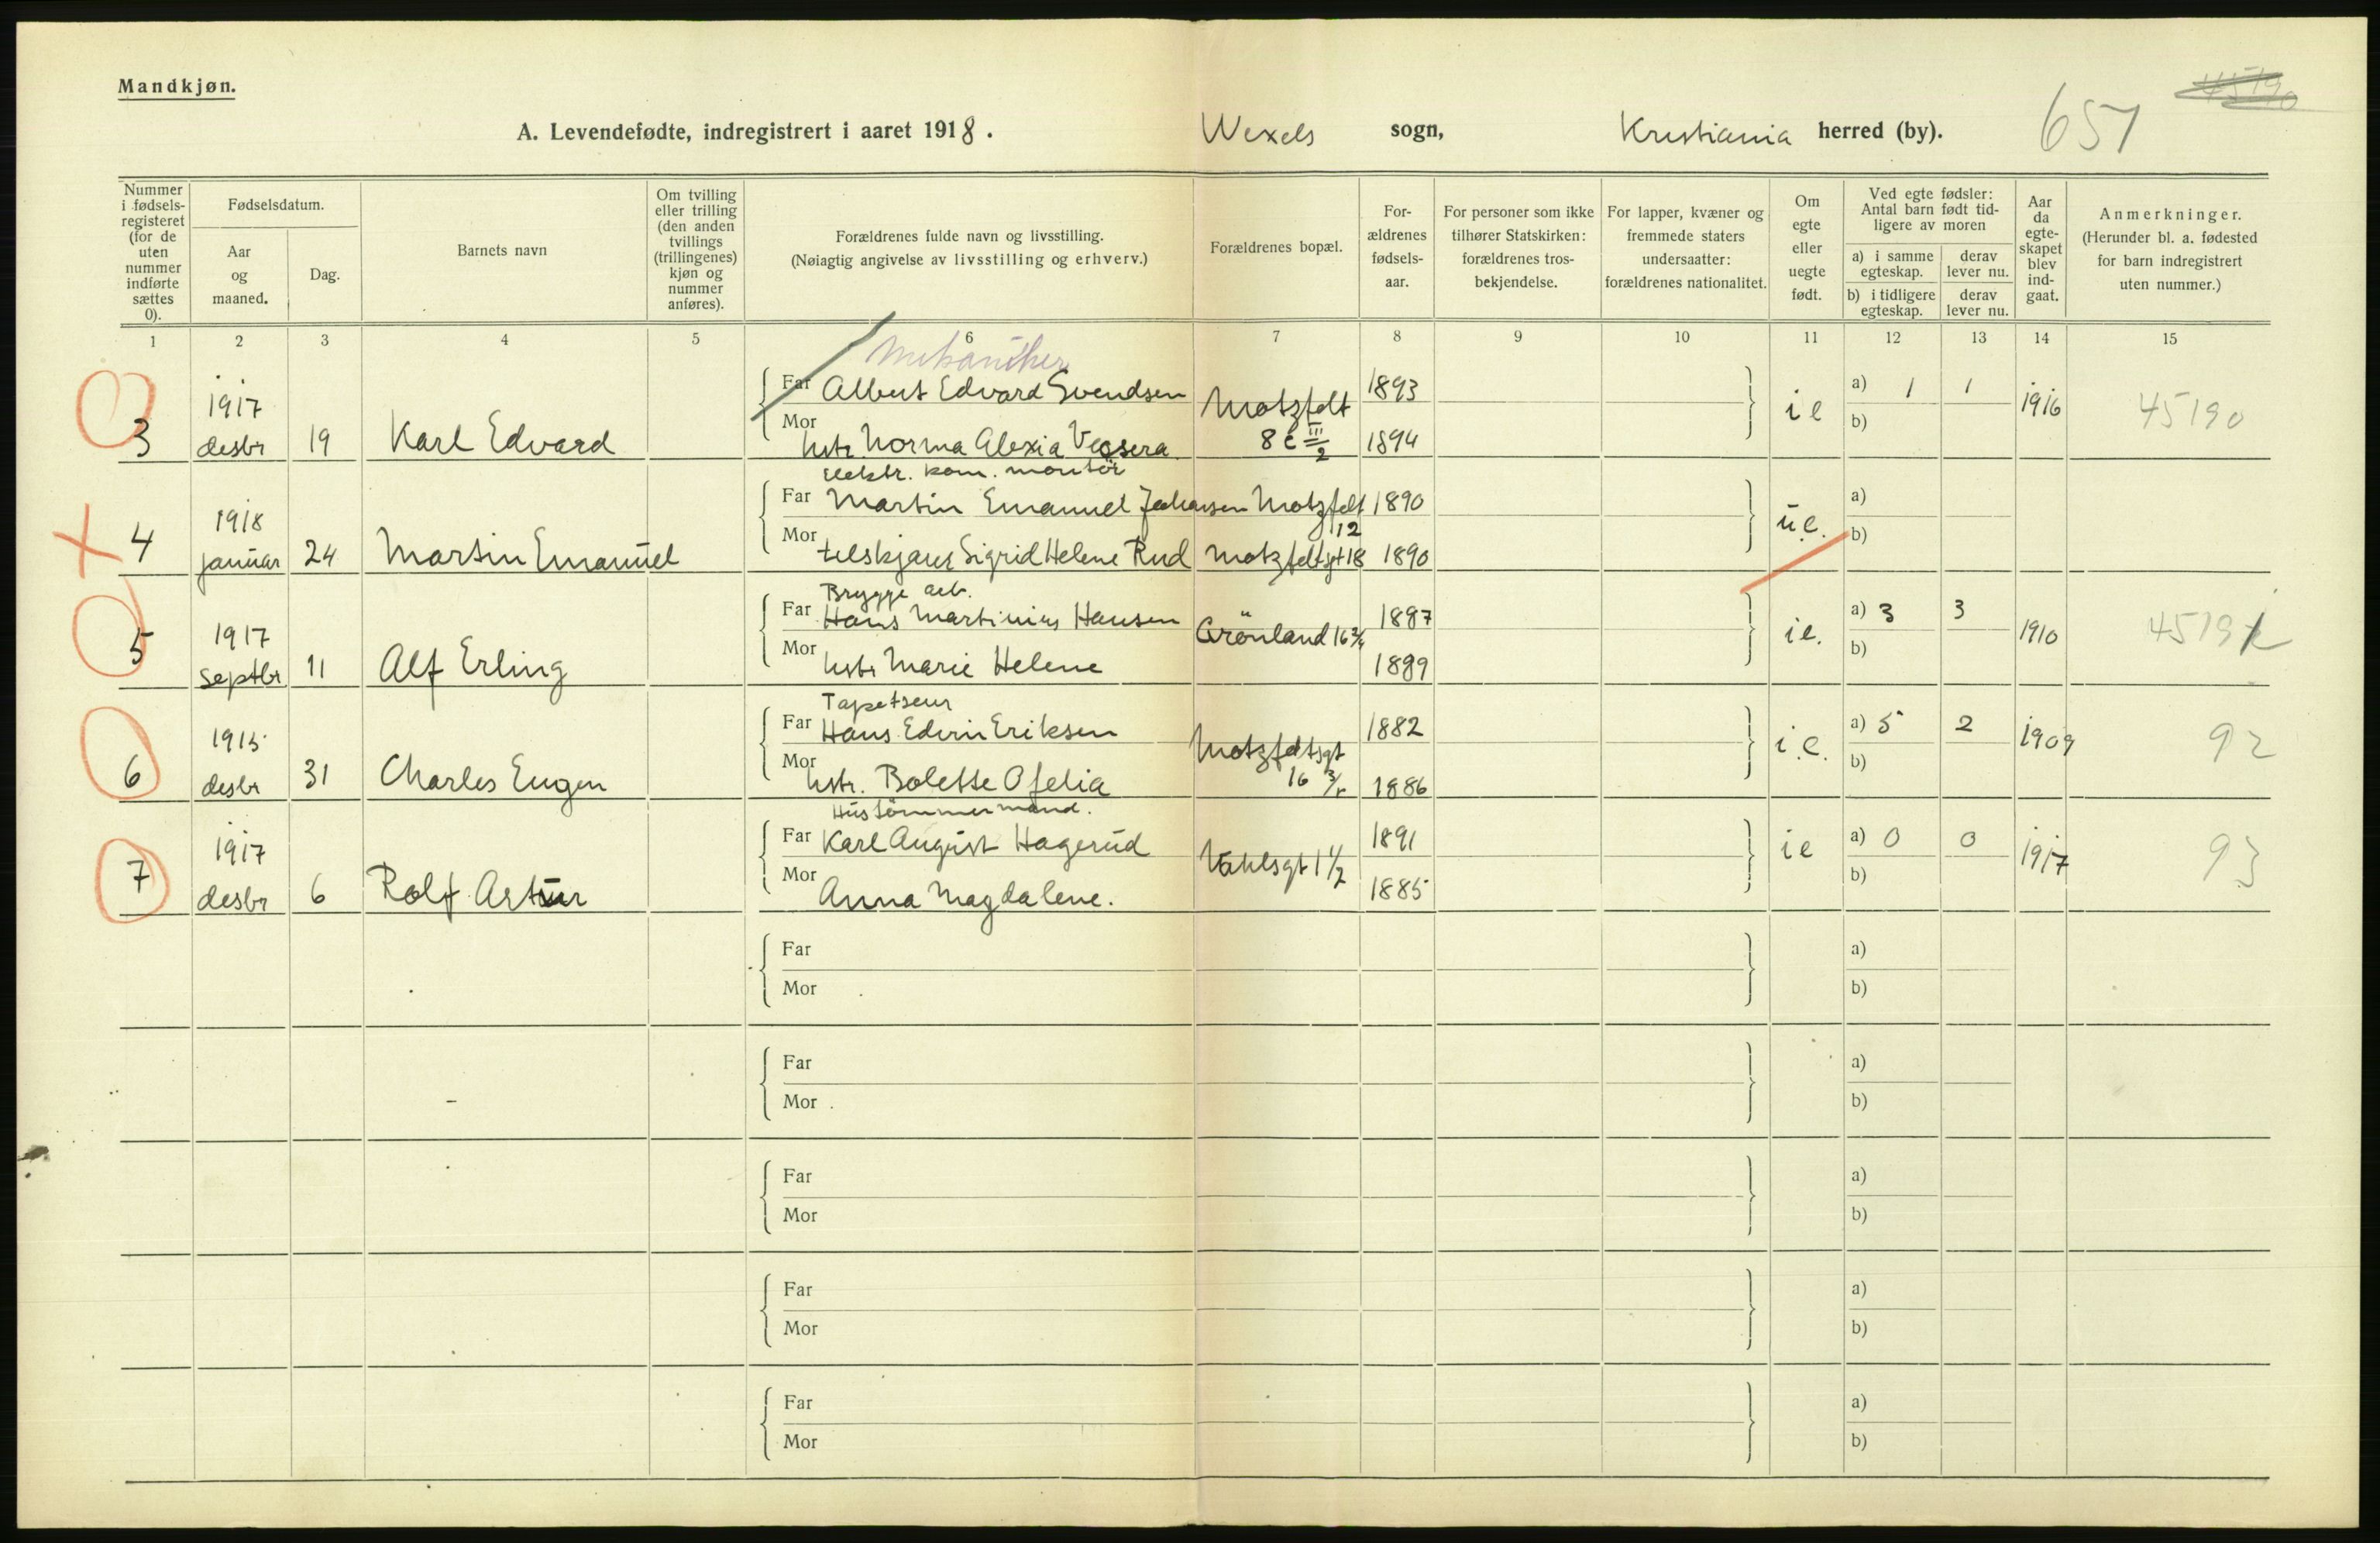 Mandkjøn.
A. Levendefødte, indregistrert i aaret 1918. Wexels sogn, Kristiania herred (by). 651
45190
Nummer i fødsels-registeret (for de uten nummer indførte sættes 0).
Fødselsdatum.
Aar og maaned.
Dag.
Barnets navn
Om tvilling eller trilling (den anden tvillings (trillingenes) kjøn og nummer anføres).
Forældrenes fulde navn og livsstilling.
(Nøiagtig angivelse av livsstilling og erhverv.)
Forældrenes bopæl.
For-ældrenes fødsels-aar.
For personer som ikke tilhører Statskirken: forældrenes tros-bekjendelse.
For lapper, kvæner og fremmede staters undersaatter: forældrenes nationalitet.
Om egte eller uegte født.
Ved egte fødsler: Antal barn født tid-ligere av moren
a) i samme egteskap.
derav lever nu.
b) i tidligere egteskap.
derav lever nu.
Aar da egte-skapet blev ind-gaat.
Anmerkninger.
(Herunder bl. a. fødested for barn indregistrert uten nummer.)
1 2 3 4 5 6 7 8 9 10 11 12 13 14 15
Mekaniker
1917 Far Albert Edvard Svendsen Motzfelt 1893 ie a) 1 1 1916 45190
3 desbr 19 Karl Edvard Mor hstr Norma Alexia 8 c III/2 1894 b)
Elektr. kom. montör
1918 Far Martin Emanuel Johansen Motzfelt 12 1890 u.e. a)
4 januar 24 Martin Emanuel Mor Sigrid Helene Rud Motzfeltsgt 18 1890 b)
Brygge arb.
1917 Far Hans Martinius Hansen Grönland 16 1887 ie. a) 3 3 1910 45191
5 septbr 11 Alf Erling Mor hstr Marie Helene 1889 b)
Tapetseur
1915 Far Hans Edvin Eriksen Motzfeltsgt 1882 i.e. a) 5 2 1909 92
6 desbr 31 Charles Eugen Mor hstr. Bolette Ofelia 16 1886 b)
Hustömmermand.
1917 Far Karl August Hagerud Vahlsgt 1 1891 ie a) 0 0 1917 93
7 desbr 6 Rolf Artur Mor Anna Magdalene. 1885 b)
Far a)
Mor b)
Far a)
Mor b)
Far a)
Mor b)
Far a)
Mor b)
Far a)
Mor b)